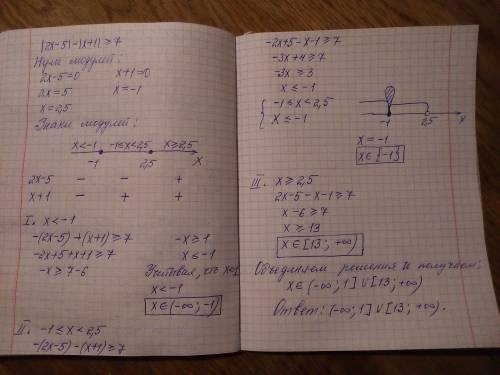 |2x-5|-|x+1|≥7
Нули модулей:
2x-5=0 x+1=0
2x=5 x=-1
x=2,5
Знаки модулей:
x<-1 -1≤x<2,5 x≥2,5
-1 2,5 x
2x-5 - - +
x+1 - + +
I. x<-1
-(2x-5)+(x+1)≥7
-2x+5+x+1≥7
-x≥7-6
-x≥1
x≤-1
Учитывая, что x<-1
x<-1
x∈(-∞;-1)
II. -1≤x<2,5
-(2x-5)-(x+1)≥7
-2x+5-x-1≥7
-3x+4≥7
-3x≥3
x≤-1
{ -1≤x<2,5
x≤-1
-1 2,5 x
x=-1
x∈{-1}
III. x≥2,5
2x-5-x-1≥7
x-6≥7
x≥13
x∈[13;+∞)
Объединяем решения и получаем:
x∈(-∞;1]∪[13;+∞)
Ответ: (-∞;1]∪[13;+∞).